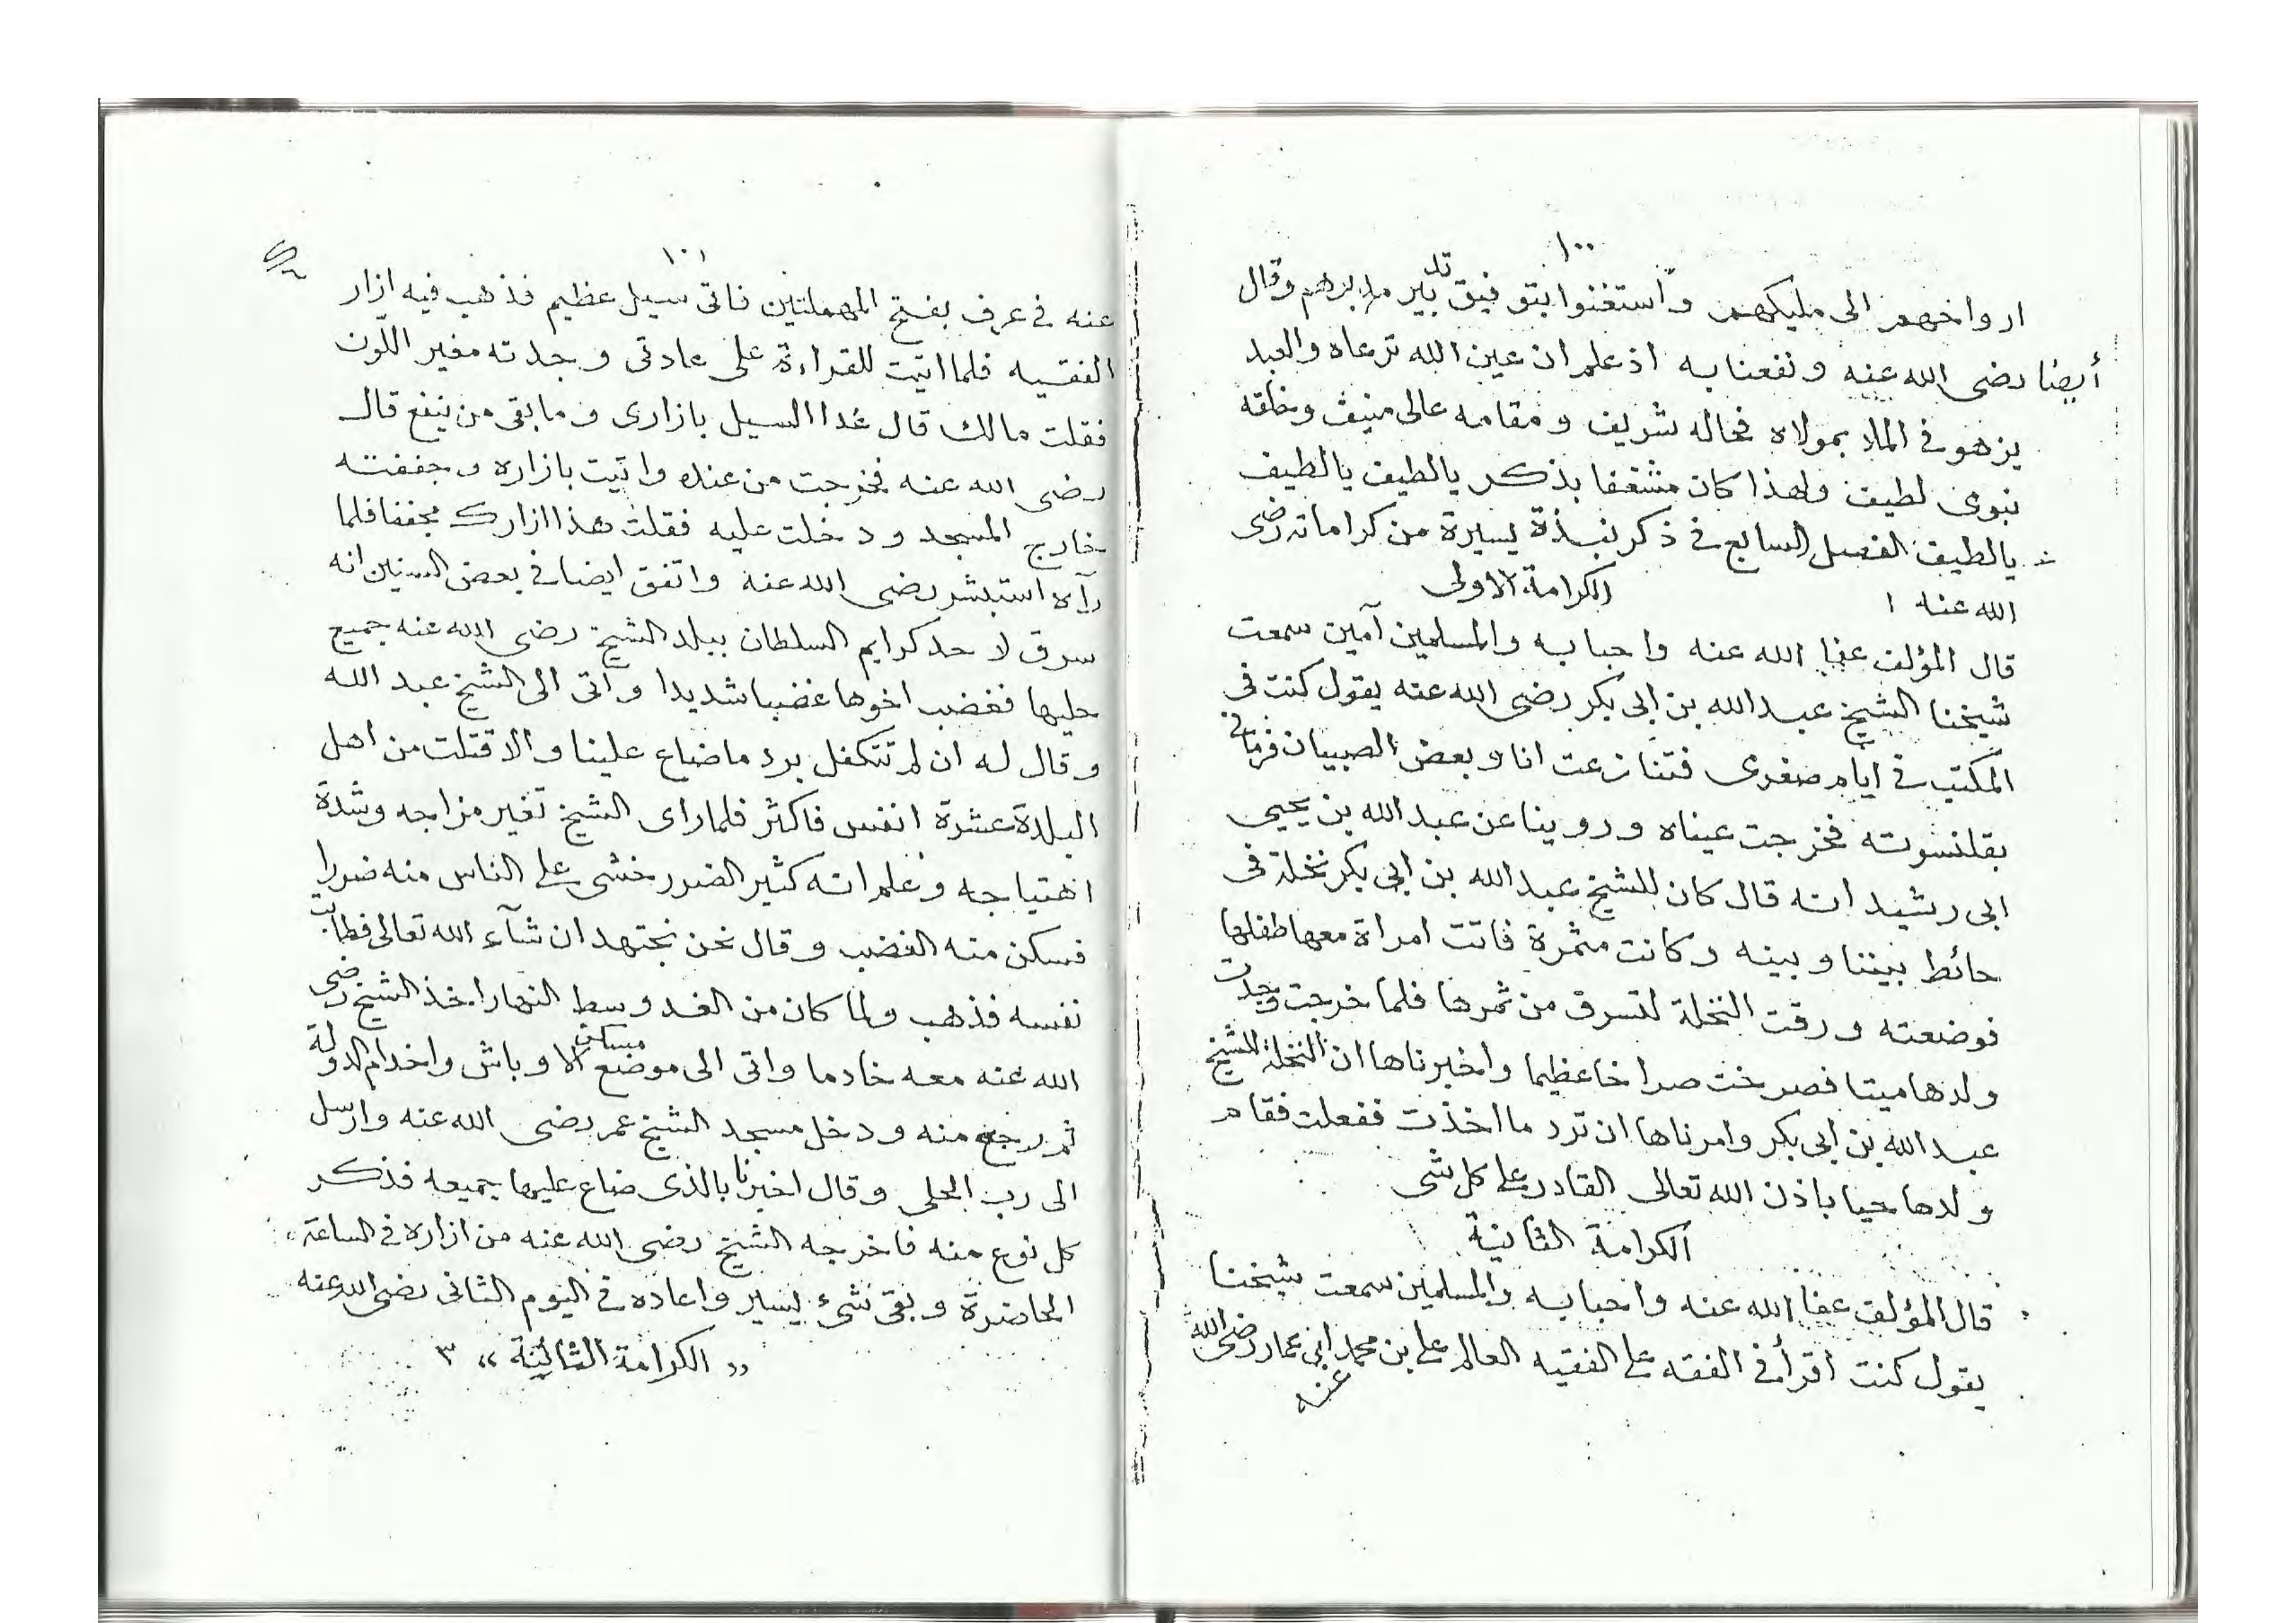 ١٠٠
ارواحهم الى مليكهم واستغنوا بتوفيق تدبير مدبرهم وقال
أيضا رضى الله عنه ونفعنا به اذ علم ان عين الله ترعاه والعبد
يزهو فى الملا بمولاه فحاله شريف ومقامه عالى منيف وخلقه
نبوى لطيف ولهذا كان مشغفا بذكر يالطيف يالطيف
يالطيف الفصل السابع فى ذكر نبذة يسيرة من كراماته رضى
الله عنه ١ الكرامة الاولى
قال المؤلف عفا الله عنه واحبابه والمسلمين آمين سمعت
شيخنا الشيخ عبد الله بن ابى بكر رضى الله عنه يقول كنت فى
المكتب فى ايام صغرى فتنازعت انا وبعض الصبيان فرمانى
بقلنسوته فخرجت عيناه وروينا عن عبد الله بن يحيى
ابى رشيد انه قال كان للشيخ عبد الله بن ابى بكر نخلة فى
حائط بيننا وبينه وكانت مثمرة فاتت امراة معها طفلها
فوضعته ورقت النخلة لتسرق من ثمرها فلما خرجت وجدت
ولدها ميتا فصرخت صراخا عظيما واخبرناها ان النخلة للشيخ
عبد الله بن ابى بكر وامرناها ان ترد ما اخذت ففعلت فقام
ولدها حيا باذن الله تعالى القادر على كل شى
الكرامة الثانية
قال المؤلف عفا الله عنه واحبابه والمسلمين سمعت شيخنا
يقول كنت أقرأ فى الفقه على الفقيه العالم على بن محمد ابى عمار رضى الله
عنه
١٠١
عنه فى عرف بفتح المهملتين فاتى سيل عظيم فذهب فيه ازار
الفقيه فلما اتيت للقراءة على عادتى وجدته مغير اللون
فقلت مالك قال غدا السيل بازارى وما بقى من ينفع قال
رضى الله عنه فخرجت من عنده واتيت بازاره وجففته
خارج المسجد ودخلت عليه فقلت هذا ازارك مجففا فلما
رآه استبشر رضى الله عنه واتفق ايضا فى بعض السنين انه
سرق لاحد كرايم السلطان ببلد الشيخ رضى الله عنه جميع
حليها فغضب اخوها غضبا شديدا وآتى الى الشيخ عبد الله
وقال له ان لم تتكفل برد ما ضاع علينا والا قتلت من اهل
البلدة عشرة انفس فاكثر فلما راى الشيخ تغير مزاجه وشدة
اهتياجه وعلم انه كثير الضرر خشى على الناس منه ضررا
فسكن منه الغضب وقال نحن نجتهد ان شآء الله تعالى فطابت
نفسه فذهب ولما كان من الغد وسط النهار اخذ الشيخ رضى
الله عنه معه خادما واتى الى موضع مساكن الاوباش واخدام الدولة
ثم رجع منه ودخل مسجد الشيخ عمر رضى الله عنه وارسل
الى رب الحلى وقال اخبرنا بالذى ضاع عليها جميعه فذكر
كل نوع منه فاخرجه الشيخ رضى الله عنه من ازاره فى الساعة
الحاضرة وبقى شىء يسير واعاده فى اليوم الثانى رضى الله عنه
« الكرامة الثالثة » ٣